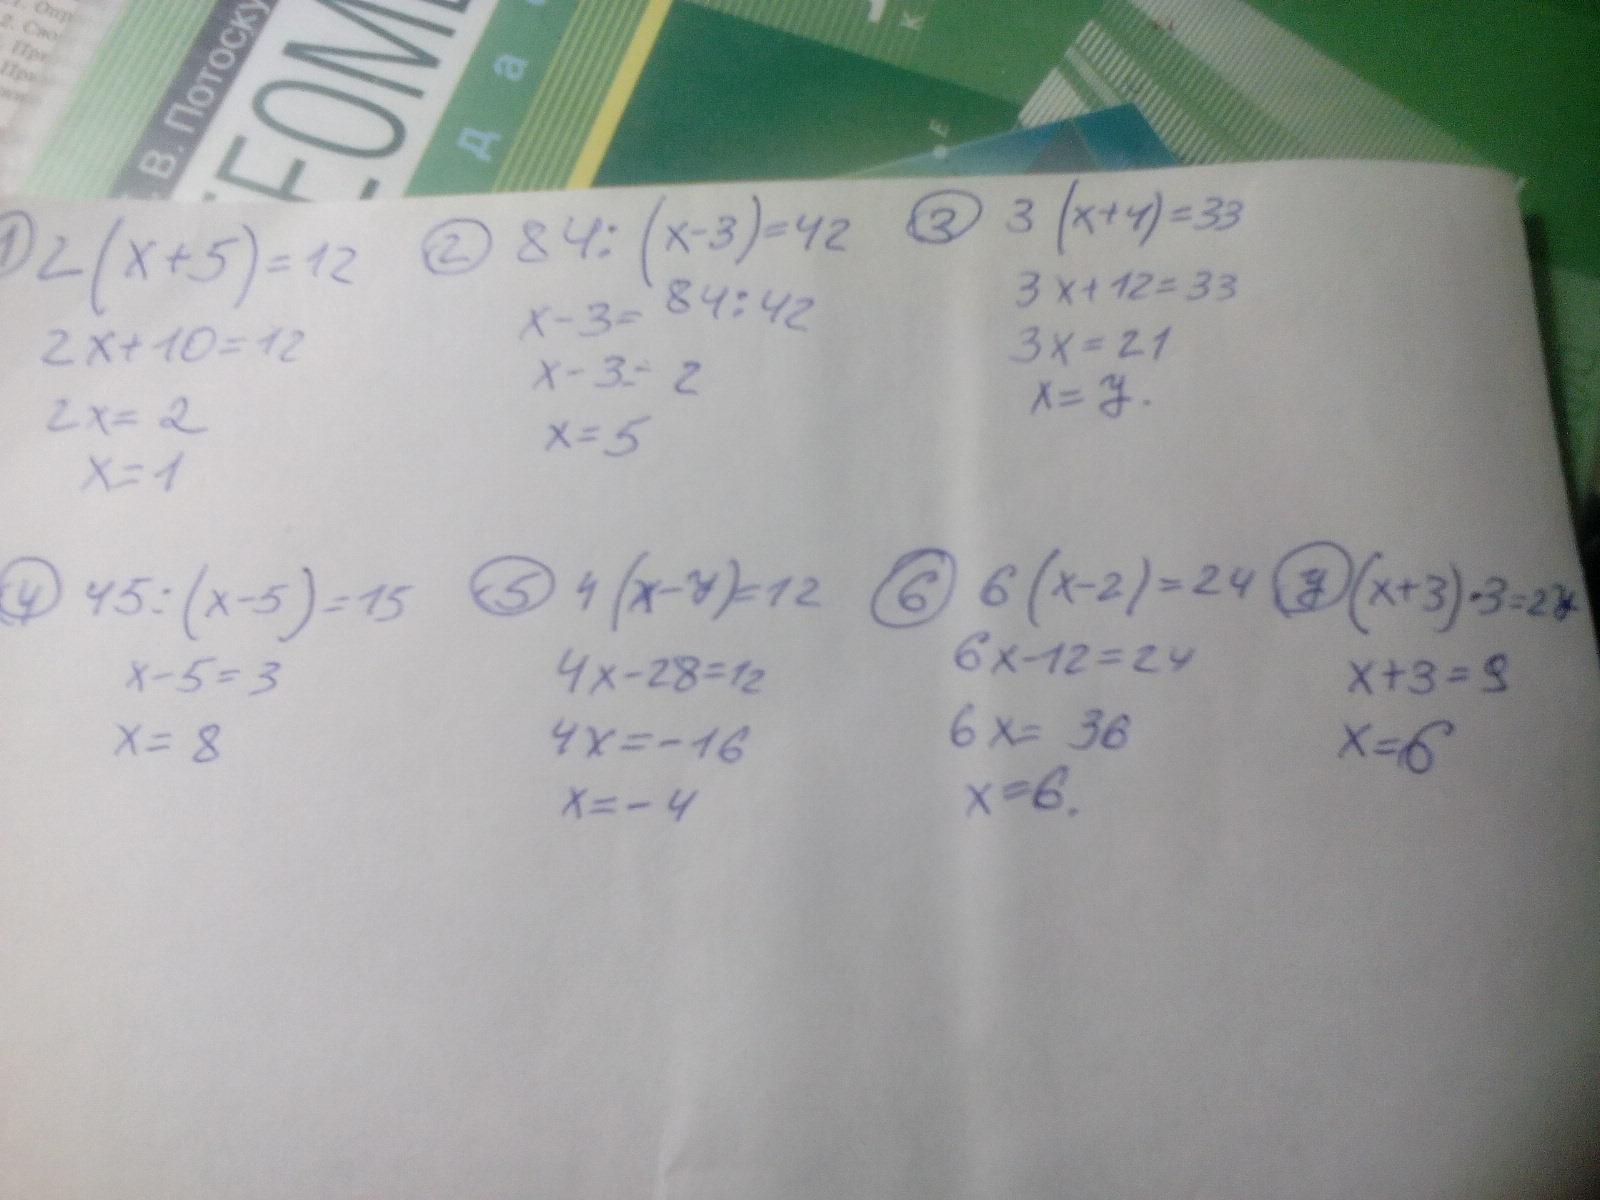 1. Опр
2. Сво
При
При
В. Потоску
ЕОМЕ
д а
К
Е
① 2(x+5)=12
2x+10=12
2x=2
x=1
② 84:(x-3)=42
x-3=84:42
x-3=2
x=5
③ 3(x+4)=33
3x+12=33
3x=21
x=7.
④ 45:(x-5)=15
x-5=3
x=8
⑤ 4(x-7)=12
4x-28=12
4x=-16
x=-4
⑥ 6(x-2)=24
6x-12=24
6x=36
x=6.
⑦ (x+3)·3=27
x+3=9
x=6